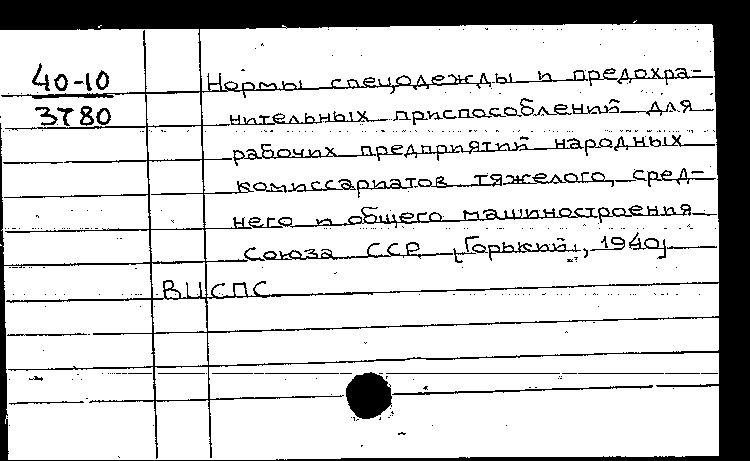 40-10
3780
Нормы спецодежды и предохра-
нительных приспособлений для
рабочих предприятий народных
комиссариатов тяжелого, сред-
него и общего машиностроения
Союза ССР [Горький, 1940]
ВЦСПС